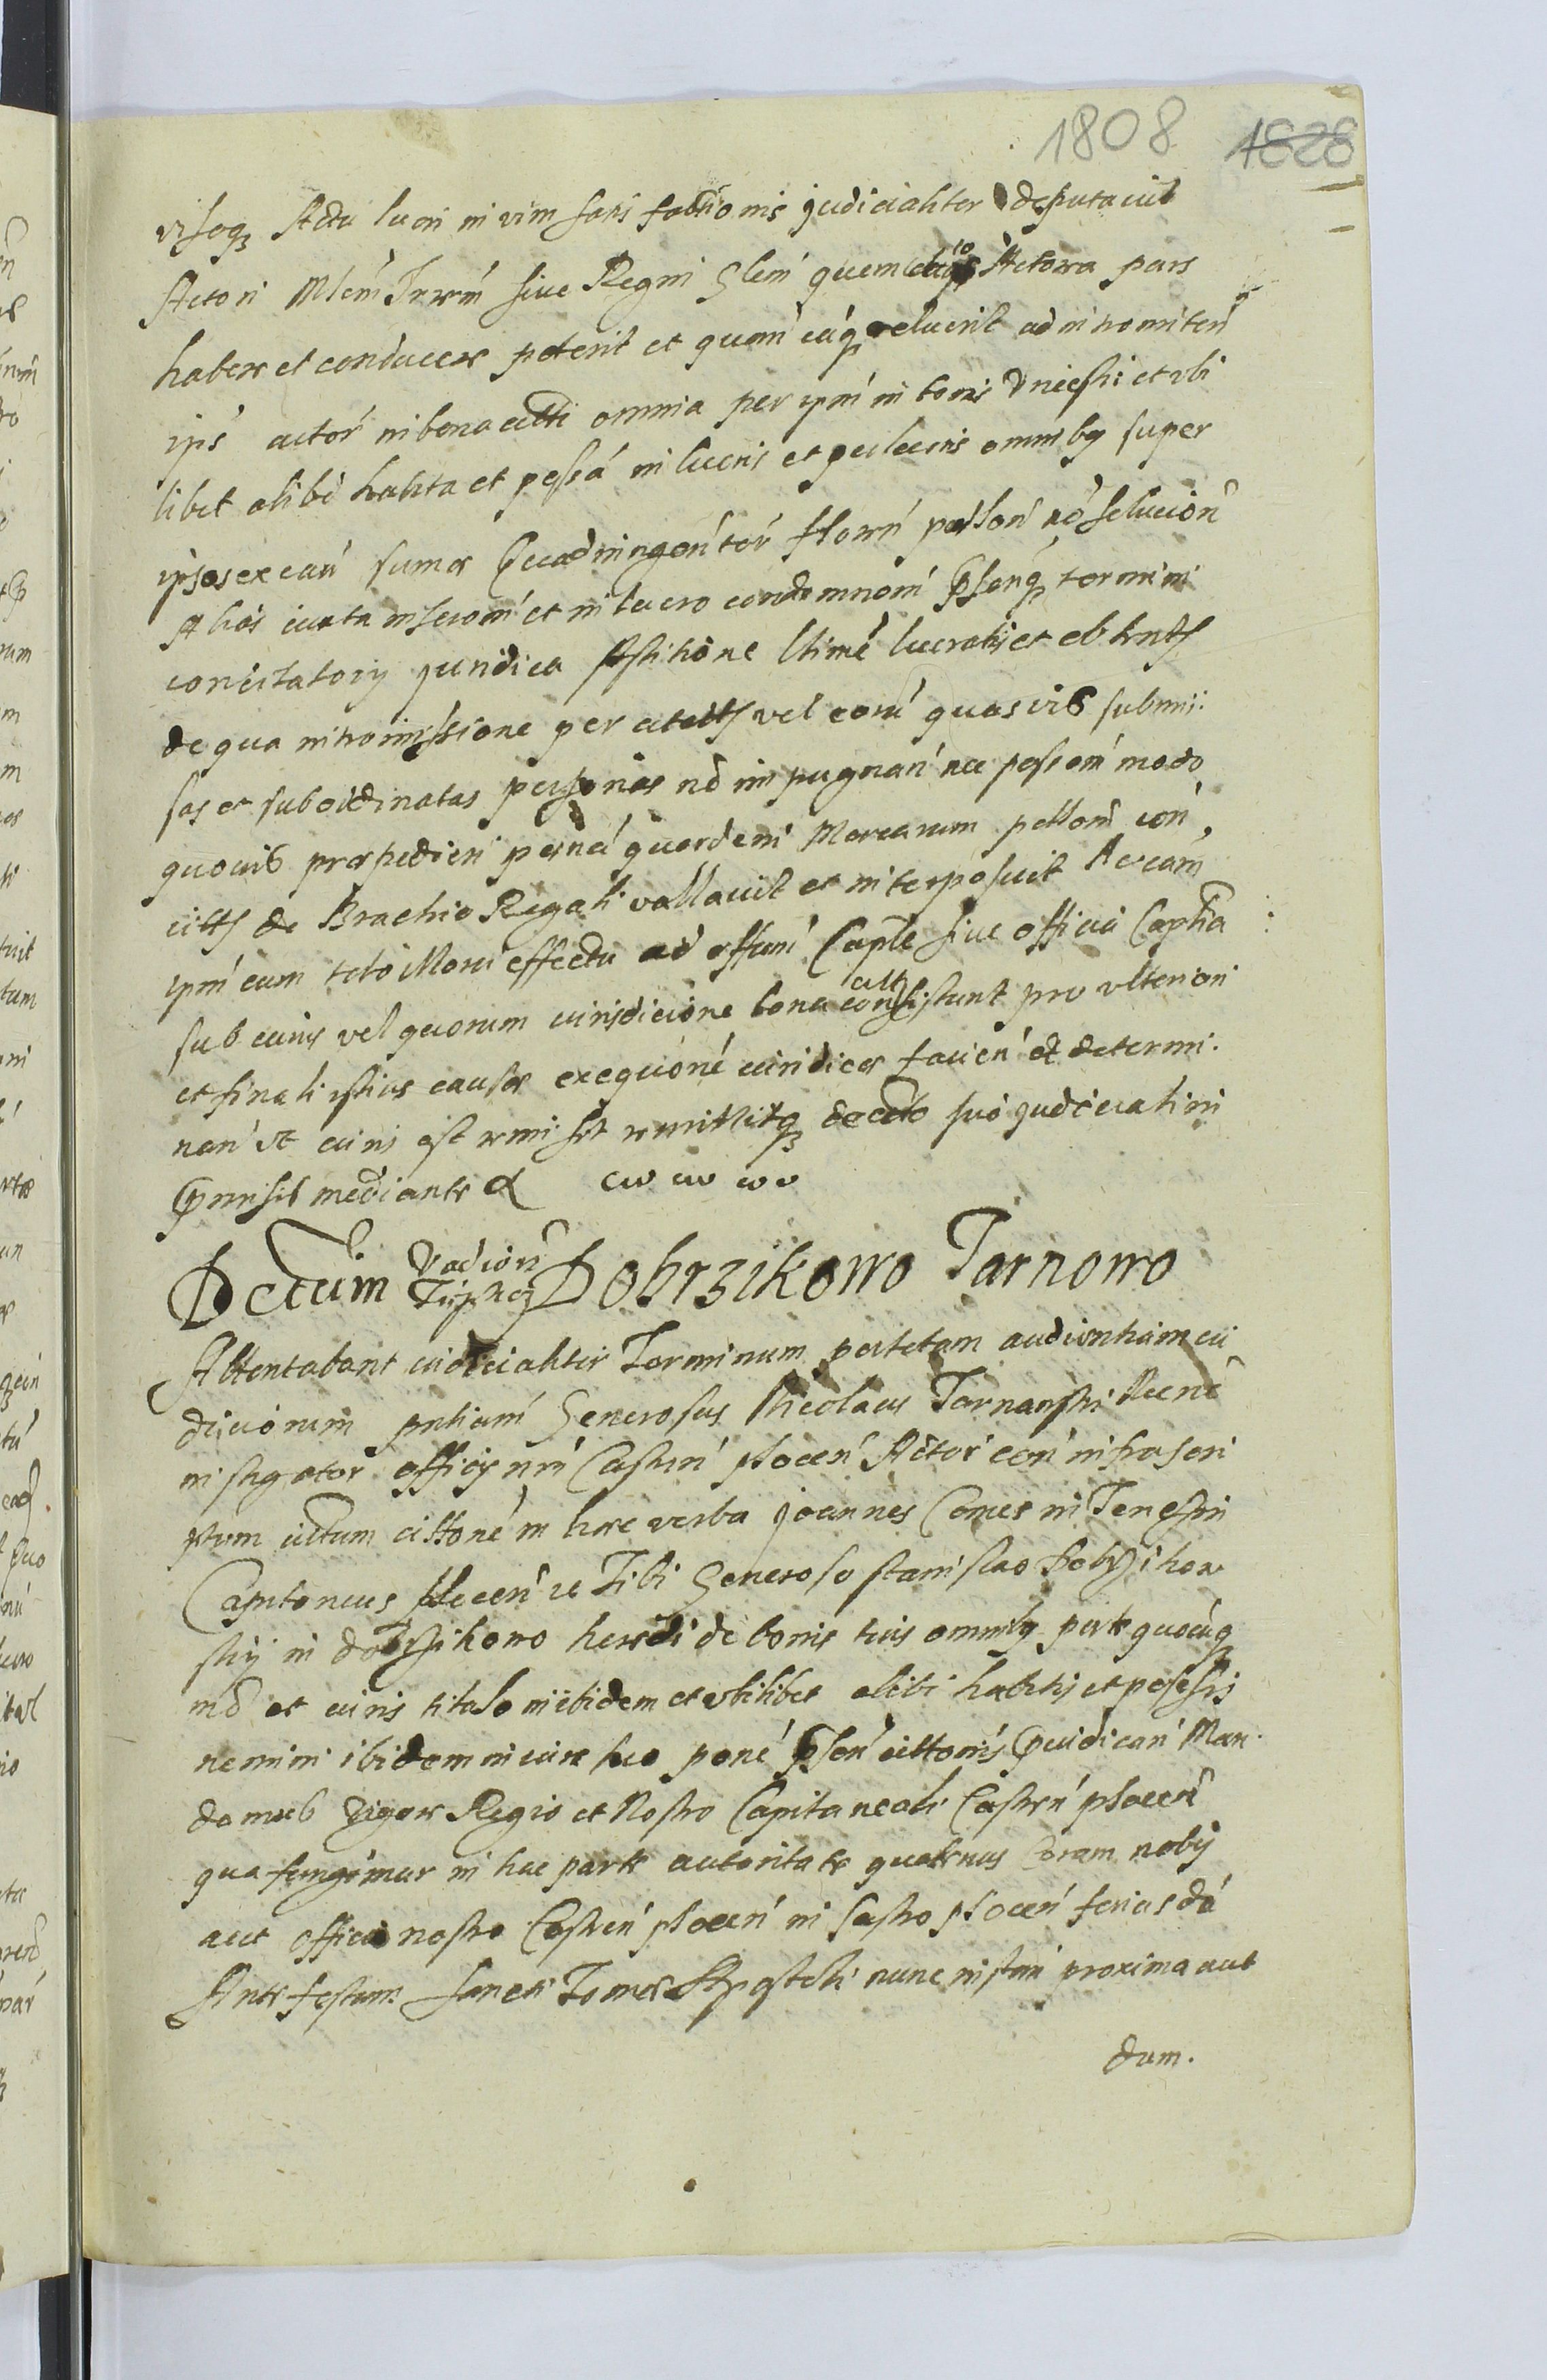 1808 1828
visoq Actu lucri in vim satis factionis judicialiter deputavit
Actori Mlem Terrm sive Regni Glem quemcunq Actorea pars
habere et conducere poterit et quem eaq reluerit ad intromitten
ips actor in bona citti omnia per ipm in bonis Unieski et vbi
libet alibi habita et possa in lucris et perlucris omnibq super
ipsos ex cau summa Quadringentor Floren pollon no solucion
Alias iuxta inscrom et in lucro condemnom psenq termini
concitatorij juridica Astitione ltime lucratis et obtents
de qua intromissione per citatts vel eoru quasvis submi:
sas et subordinatas personas no impugnan nec possom modo
quovis praepedien poena quordem Marcarum pollon con,
citts de Brachio Regali vallavit et interposuit Ac eam
ipm cum toto illoru effectu ad offum Caple sive officia Caplia
sub cuius vel quorum iurisdicione bona citt consistunt pro vlteriori
et finali istius causae exequone iuridice facien et determi.
nan vt iuris est remisit remittitq decto suo judiciali in
pmissis mediante
Dectum Vadion Triplicis Dobrzikowo Tarnowo
Attentabant iudicialiter Terminum peremtem audientiam iu
diciorum pntium Generosus Nicolaus Tarnanski Recne
instigator officij nri Castrn plocen Actor con infrascri
ptum iuctum cittone in haec verba Joannes Comes in Tenczin
Capitaneus plocen ec Tibi Generoso stanislao Dobrzikow
skij in dobrzikowo heredi de bonis tuis omnibq perte quocuq
mo et iuris titulo inibidem et vbilibet alibi habitis et possessis
nemini ibidem in iure suo pone psen cittonis pjudican Man.
damus vigore Regio et Nostro Capitaneali Castren plocen
qua fungimur in hac parte autoritate quatenus Coram nobis
aut officio nostro Castren plocen in Castro plocen ferias da
Ante festum sancti Tomae Apostoli nunc instan proxima aut
dum.